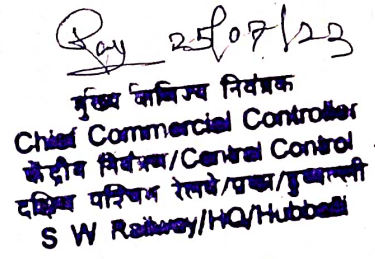 25/07/23
मुख्य वाणिज्य नियंत्रक
Chief Commercial Controller
केंद्रीय नियंत्रण/Central Control
दक्षिण पश्चिम रेलवे/प्रका/हुब्बल्ली
S W Railway/HQ/Hubballi